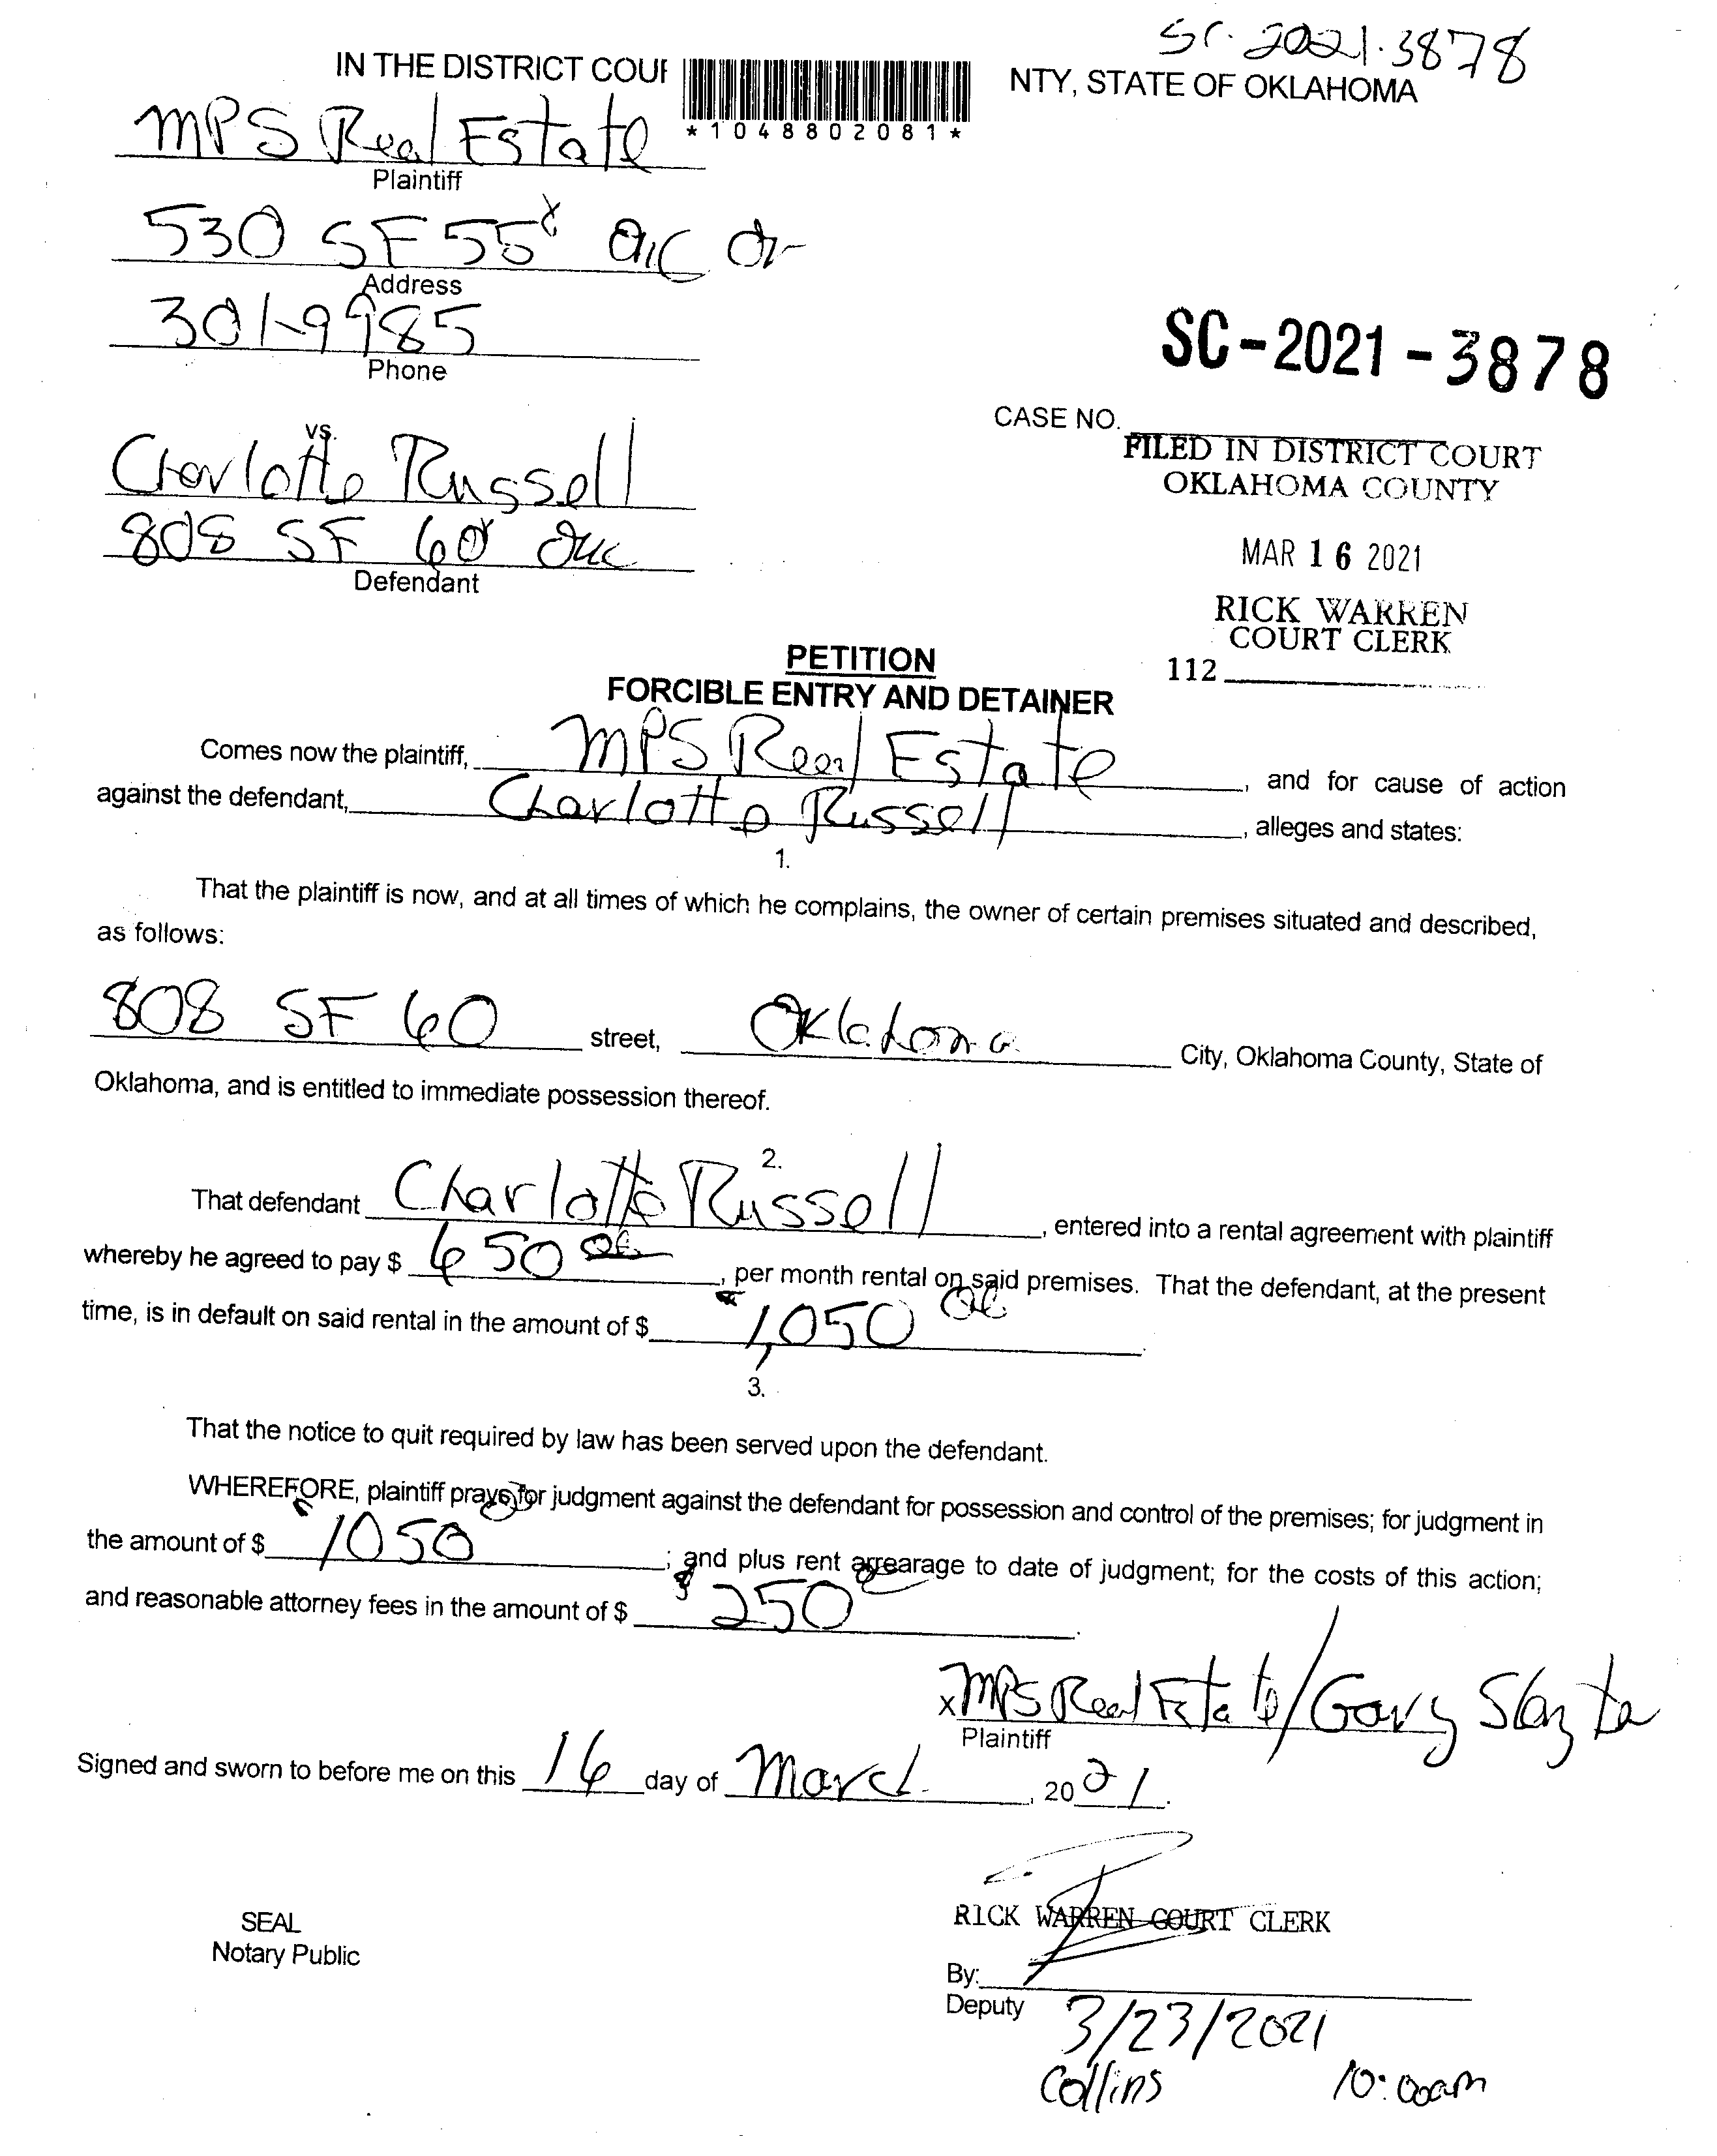 SC-2021-3878
IN THE DISTRICT COUR NTY, STATE OF OKLAHOMA
*1048802081*
MPS Real Estate
Plaintiff
530 SE 55
Address
301-9985
Phone
SC-2021-3878
CASE NO.
FILED IN DISTRICT COURT
OKLAHOMA COUNTY
MAR 16 2021
RICK WARREN
COURT CLERK
112
vs.
Charlotte Russell
808 SE 60
Defendant
PETITION
FORCIBLE ENTRY AND DETAINER
Comes now the plaintiff, MPS Real Estate, and for cause of action
against the defendant, Charlotte Russell, alleges and states:
1.
That the plaintiff is now, and at all times of which he complains, the owner of certain premises situated and described,
as follows:
808 SE 60 street, Oklahoma City, Oklahoma County, State of
Oklahoma, and is entitled to immediate possession thereof.
2.
That defendant Charlotte Russell, entered into a rental agreement with plaintiff
whereby he agreed to pay $ 650 00, per month rental on said premises. That the defendant, at the present
time, is in default on said rental in the amount of $ 1,050 00
3.
That the notice to quit required by law has been served upon the defendant.
WHEREFORE, plaintiff prays for judgment against the defendant for possession and control of the premises; for judgment in
the amount of $ 1050; and plus rent arrearage to date of judgment; for the costs of this action;
and reasonable attorney fees in the amount of $ 250.
x MPS Real Estate/Gary Slayton
Plaintiff
Signed and sworn to before me on this 16 day of March, 2021.
SEAL
Notary Public
RICK WARREN COURT CLERK
By:
Deputy
3/23/2021
Collins 10:00am